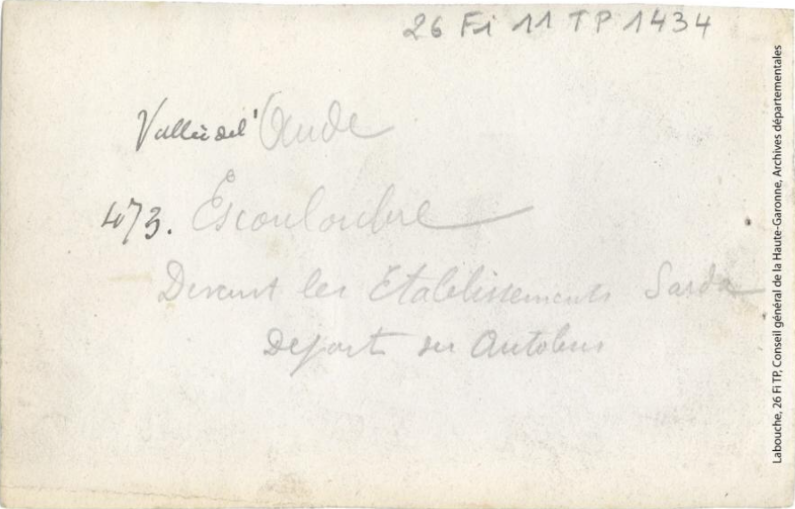 26 Fi 11 TP 1434
Vallée de l'Aude
473. Escouloubre
Devant les Etablissements Sarda
Depart des Autobus
Labouche, 26 Fi TP, Conseil général de la Haute-Garonne, Archives départementales